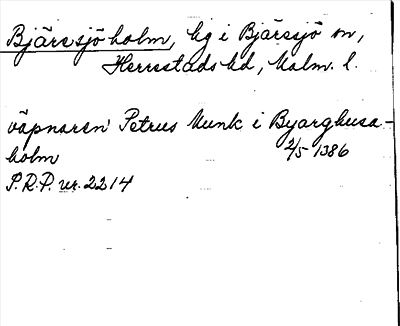 Bjäresjöholm, hg i Bjäresjö sn,
Herrestads hd, Malm. l.
väpnaren Petrus Munk i Byarghusa-
holm 2/5 1386
S.R.P. nr. 2214